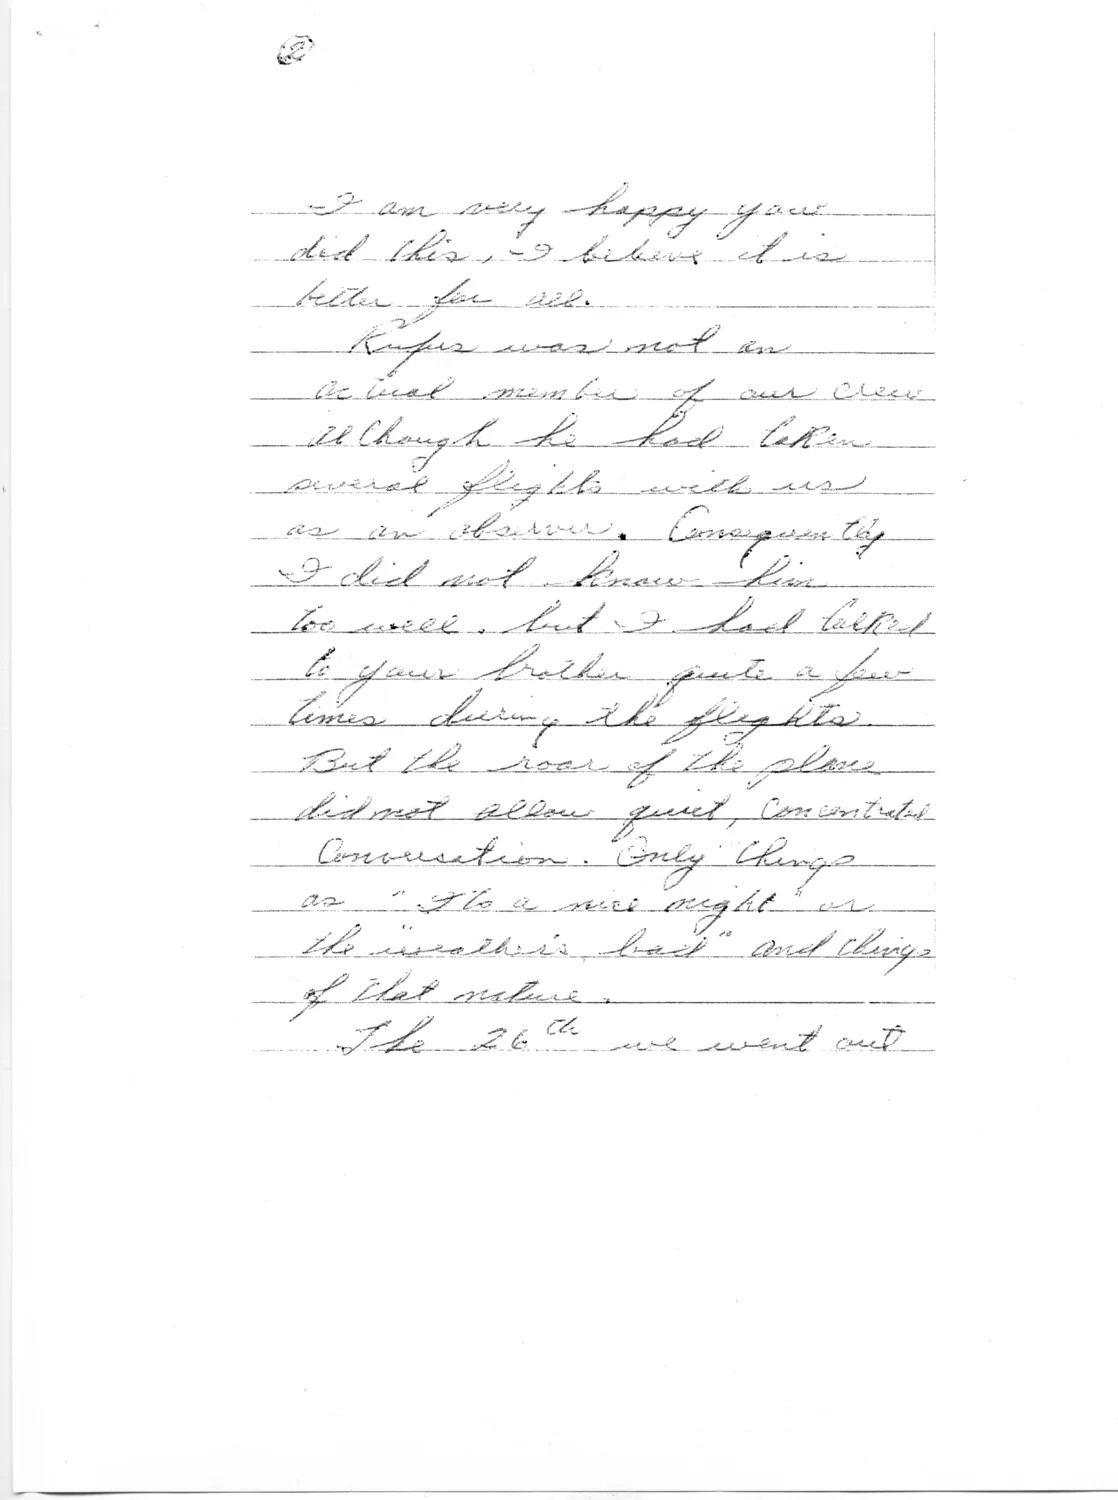 2
I am very happy you
did this, I believe it is
better for all.
Rufus was not an
actual member of our crew
although he had taken
several flights with us
as an observer. Consequently
I did not know him
too well. but I had talked
to your brother quite a few
times during the flights.
But the roar of the plane
did not allow quiet, concentrated
conversation. Only things
as "It's a nice night" or
the "weather's bad" and things
of that nature.
The 26th we went out